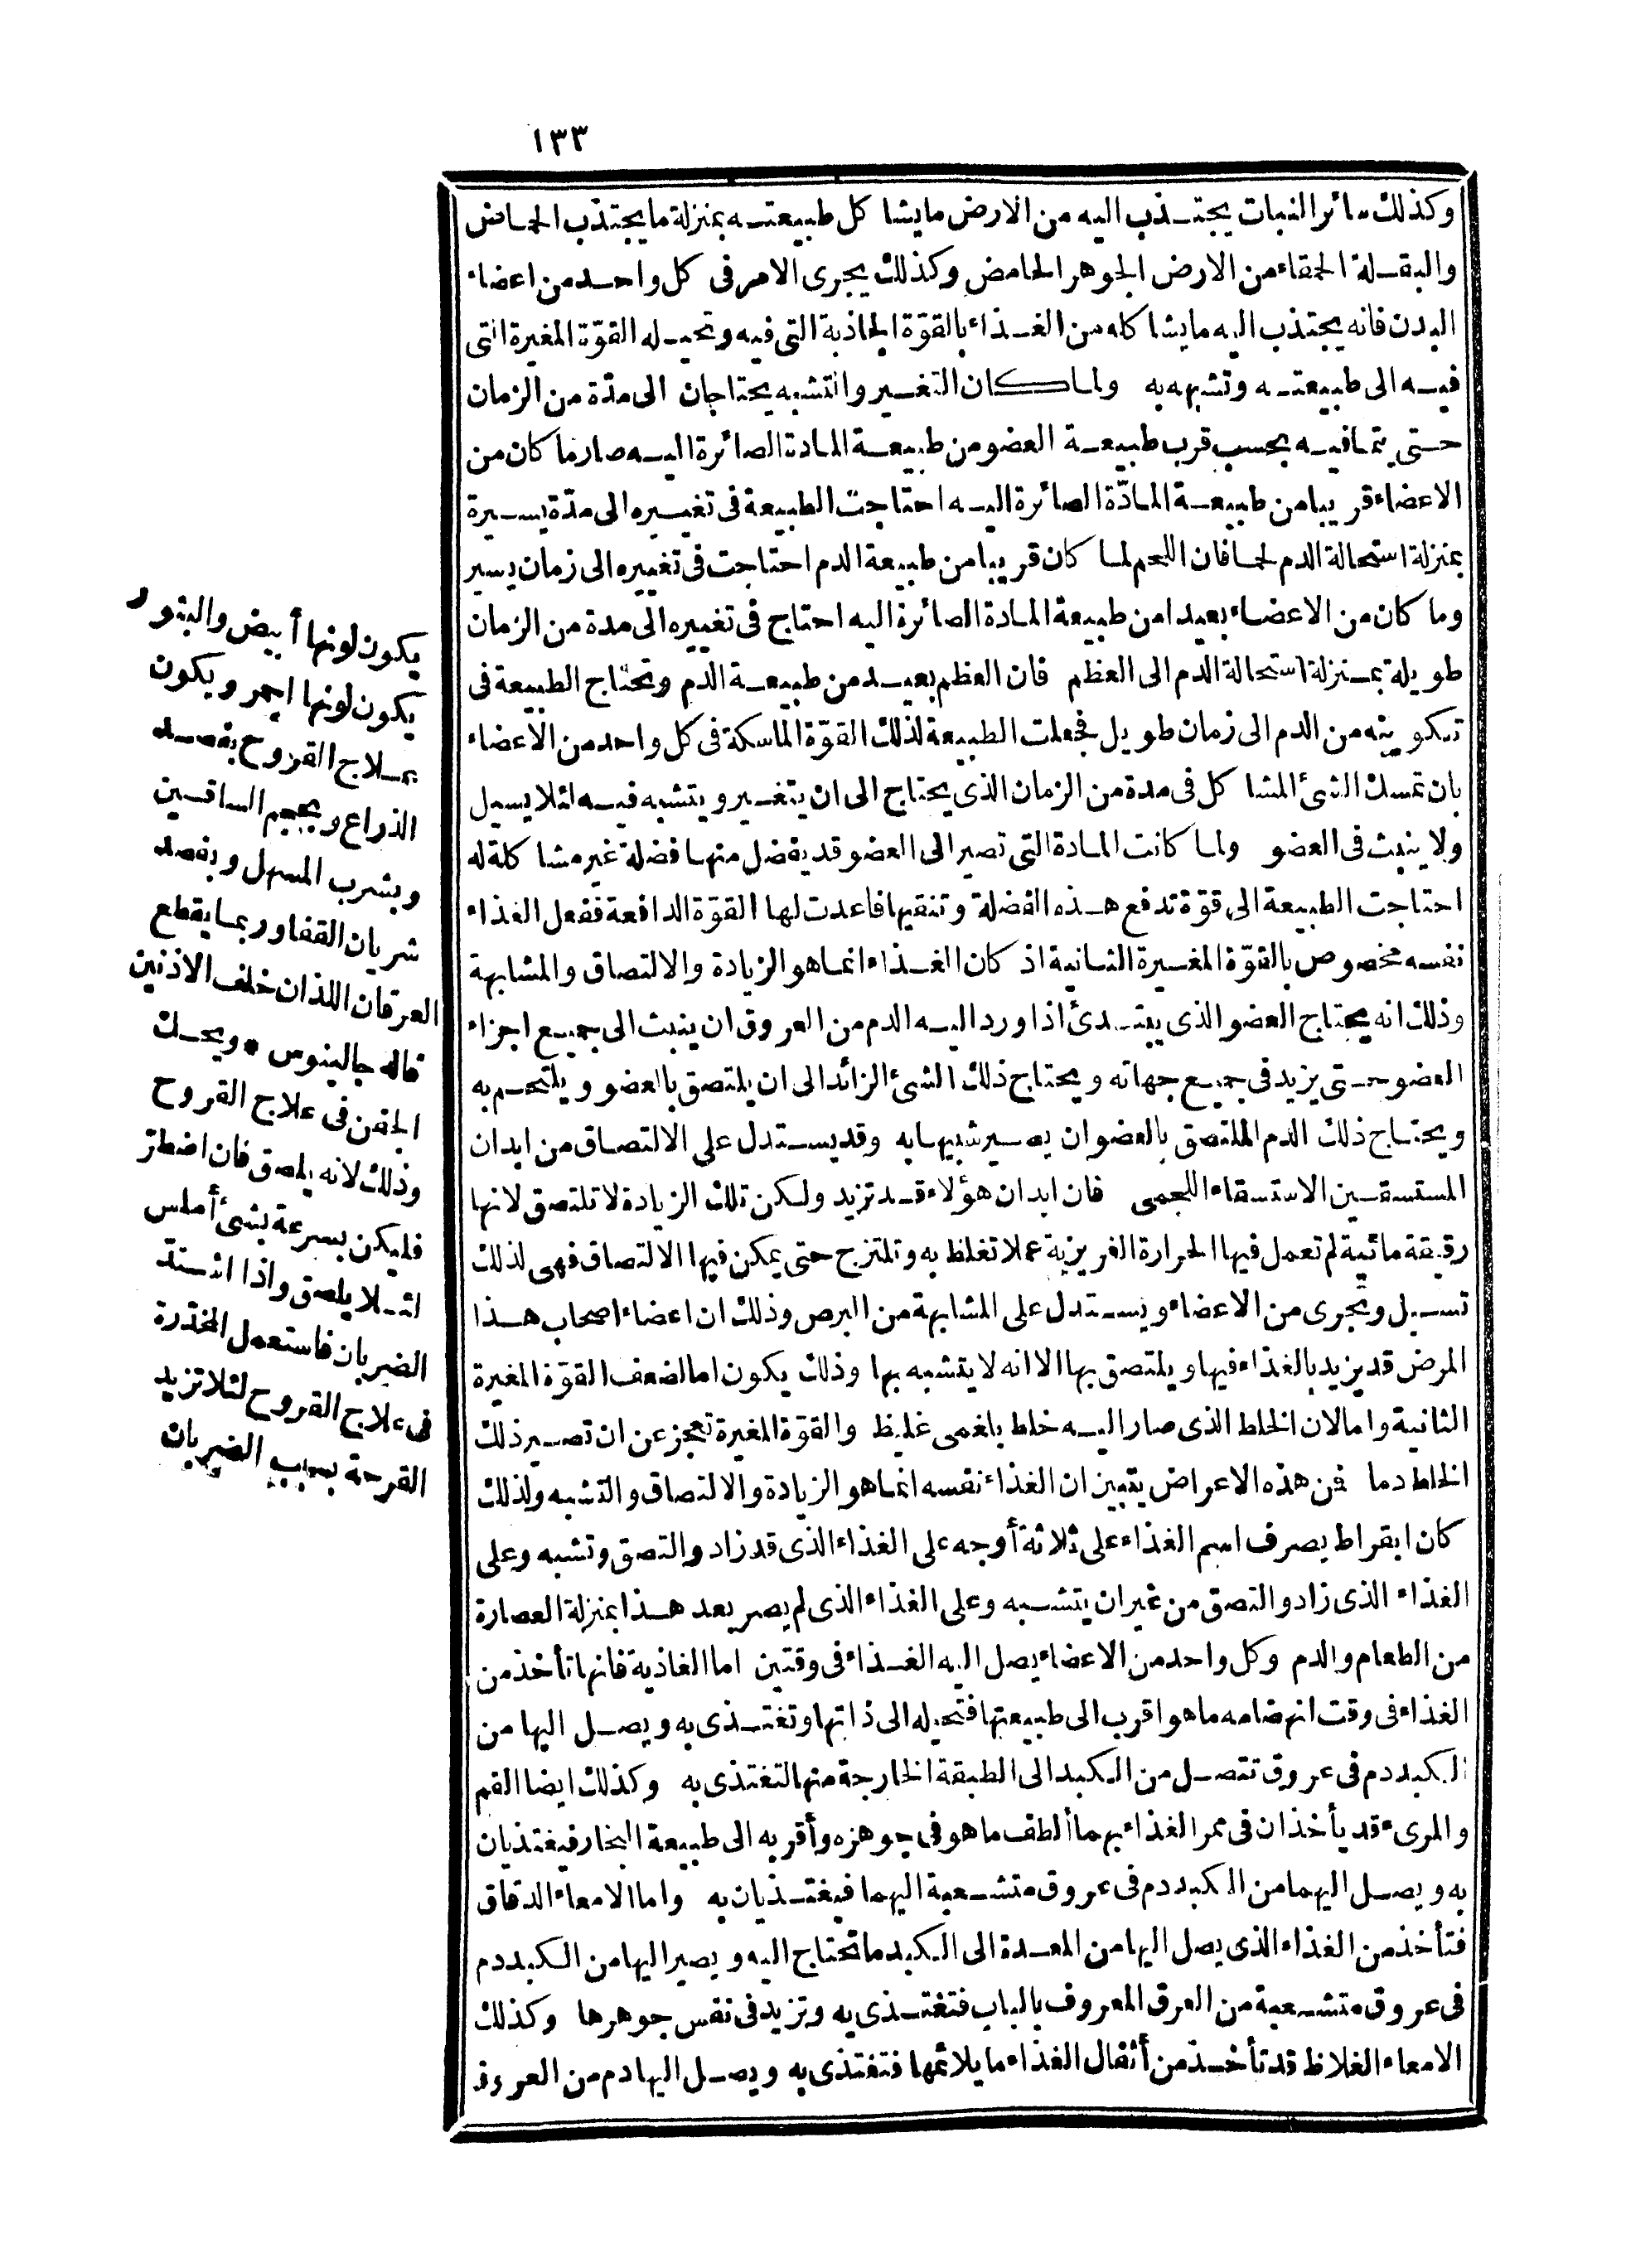 ١٣٣
وكذلك سائر النبات يجتذب اليه من الارض ما يشا كل طبيعته بمنزلة ما يجتذب الحماض
والبقلة الحمقاء من الارض الجوهر الحامض وكذلك يجرى الامر فى كل واحد من اعضاء
البدن فانه يجتذب اليه ما يشا كله من الغذاء بالقوّة الجاذبة التى فيه وتحيله القوّة المغيرة التى
فيه الى طبيعته وتشبهه به ولما كان التغيير والتشبه يحتاجان الى مدّة من الزمان
حتى يتما فيه بحسب قرب طبيعة العضو من طبيعة المادة الصائرة اليه صار ما كان من
الاعضاء قريبا من طبيعة المادّة الصائرة اليه احتاجت الطبيعة فى تغييره الى مدّة يسيرة
بمنزلة استحالة الدم لحما فان اللحم لما كان قريبا من طبيعة الدم احتاجت فى تغييره الى زمان يسير
وما كان من الاعضاء بعيدا من طبيعة المادة الصائرة اليه احتاج فى تغييره الى مدة من الزمان
طويلة بمنزلة استحالة الدم الى العظم فان العظم بعيد من طبيعة الدم وتحتاج الطبيعة فى
تكوينه من الدم الى زمان طويل فجعلت الطبيعة لذلك القوّة الماسكة فى كل واحد من الاعضاء
بان تمسك الشئ المشا كل فى مدة من الزمان الذى يحتاج الى ان يتغير ويتشبه فيه لئلا يسيل
ولا ينبث فى العضو ولما كانت المادة التى تصير الى العضو قد يفضل منها فضلة غير مشا كلة له
احتاجت الطبيعة الى قوّة تدفع هذه الفضلة وتنقيها فاعدت لها القوّة الدافعة ففعل الغذاء
نفسه مخصوص بالقوّة المغيرة الثانية اذ كان الغذاء انما هو الزيادة والالتصاق والمشابهة
وذلك انه يحتاج العضو الذى يبتدئ اذا ورد اليه الدم من العروق ان ينبث الى جميع اجزاء
العضو حتى يزيد فى جميع جهاته ويحتاج ذلك الشئ الزائد الى ان يلتصق بالعضو ويلتحم به
ويحتاج ذلك الدم الملتصق بالعضو ان يصير شبيها به وقد يستدل على الالتصاق من ابدان
المستسقين الاستسقاء اللحمى فان ابدان هؤلاء قد تزيد ولكن تلك الزيادة لا تلتصق لانها
رقيقة مائية لم تعمل فيها الحرارة الغريزية عملا تغلظ به وتلتزج حتى يمكن فيها الالتصاق فهى لذلك
تسيل وتجرى من الاعضاء ويستدل على المشابهة من البرص وذلك ان اعضاء اصحاب هذا
المرض قد يزيد بالغذاء فيها ويلتصق بها الا انه لا يتشبه بها وذلك يكون اما لضعف القوّة المغيرة
الثانية واما لان الخلط الذى صار اليه خلط بلغمى غليظ والقوّة المغيرة تعجز عن ان تصير ذلك
الخلط دما فمن هذه الاعراض يتبين ان الغذاء نفسه انما هو الزيادة والالتصاق والتشبه ولذلك
كان ابقراط يصرف اسم الغذاء على ثلاثة أوجه على الغذاء الذى قد زاد والتصق وتشبه وعلى
الغذاء الذى زاد والتصق من غير ان يتشبه وعلى الغذاء الذى لم يصر بعد هذا بمنزلة العصارة
من الطعام والدم وكل واحد من الاعضاء يصل اليه الغذاء فى وقتين اما الغاذية فانها تأخذ من
الغذاء فى وقت انهضامه ما هو اقرب الى طبيعتها فتحيله الى ذاتها وتغتذى به ويصل اليها من
الكبد دم فى عروق تتصل من الكبد الى الطبقة الخارجة منها لتغتذى به وكذلك ايضا الفم
والمرىء قد يأخذان فى ممر الغذاء بهما ألطف ما هو فى جوهره وأقربه الى طبيعة البخار فيغتذيان
به ويصل اليهما من الكبد دم فى عروق متشعبة اليهما فيغتذيان به واما الامعاء الدقاق
فتأخذ من الغذاء الذى يصل اليها من المعدة الى الكبد ما تحتاج اليه ويصير اليها من الكبد دم
فى عروق متشعبة من العرق المعروف بالباب فتغتذى به وتزيد فى نفس جوهرها وكذلك
الامعاء الغلاظ قد تأخذ من أثفال الغذاء ما يلائمها فتغتذى به ويصل اليها دم من العروق
يكون لونها أبيض والبثور
يكون لونها احمر ويكون
علاج القروح بفصد
الذراع وبحجم الساقين
وبشرب المسهل وبفصد
شريان القفا وربما يقطع
العرقان اللذان خلف الاذنين
قاله جالينوس * ويحك
الجفن فى علاج القروح
وذلك لانه يلصق فان اضطرّ
فليكن بسرعة بشئ أملس
لئلا يلصق واذا اشتدّ
الضربان فاستعمل المخدّرة
فى علاج القروح لئلا تزيد
القرحة بسبب الضربان